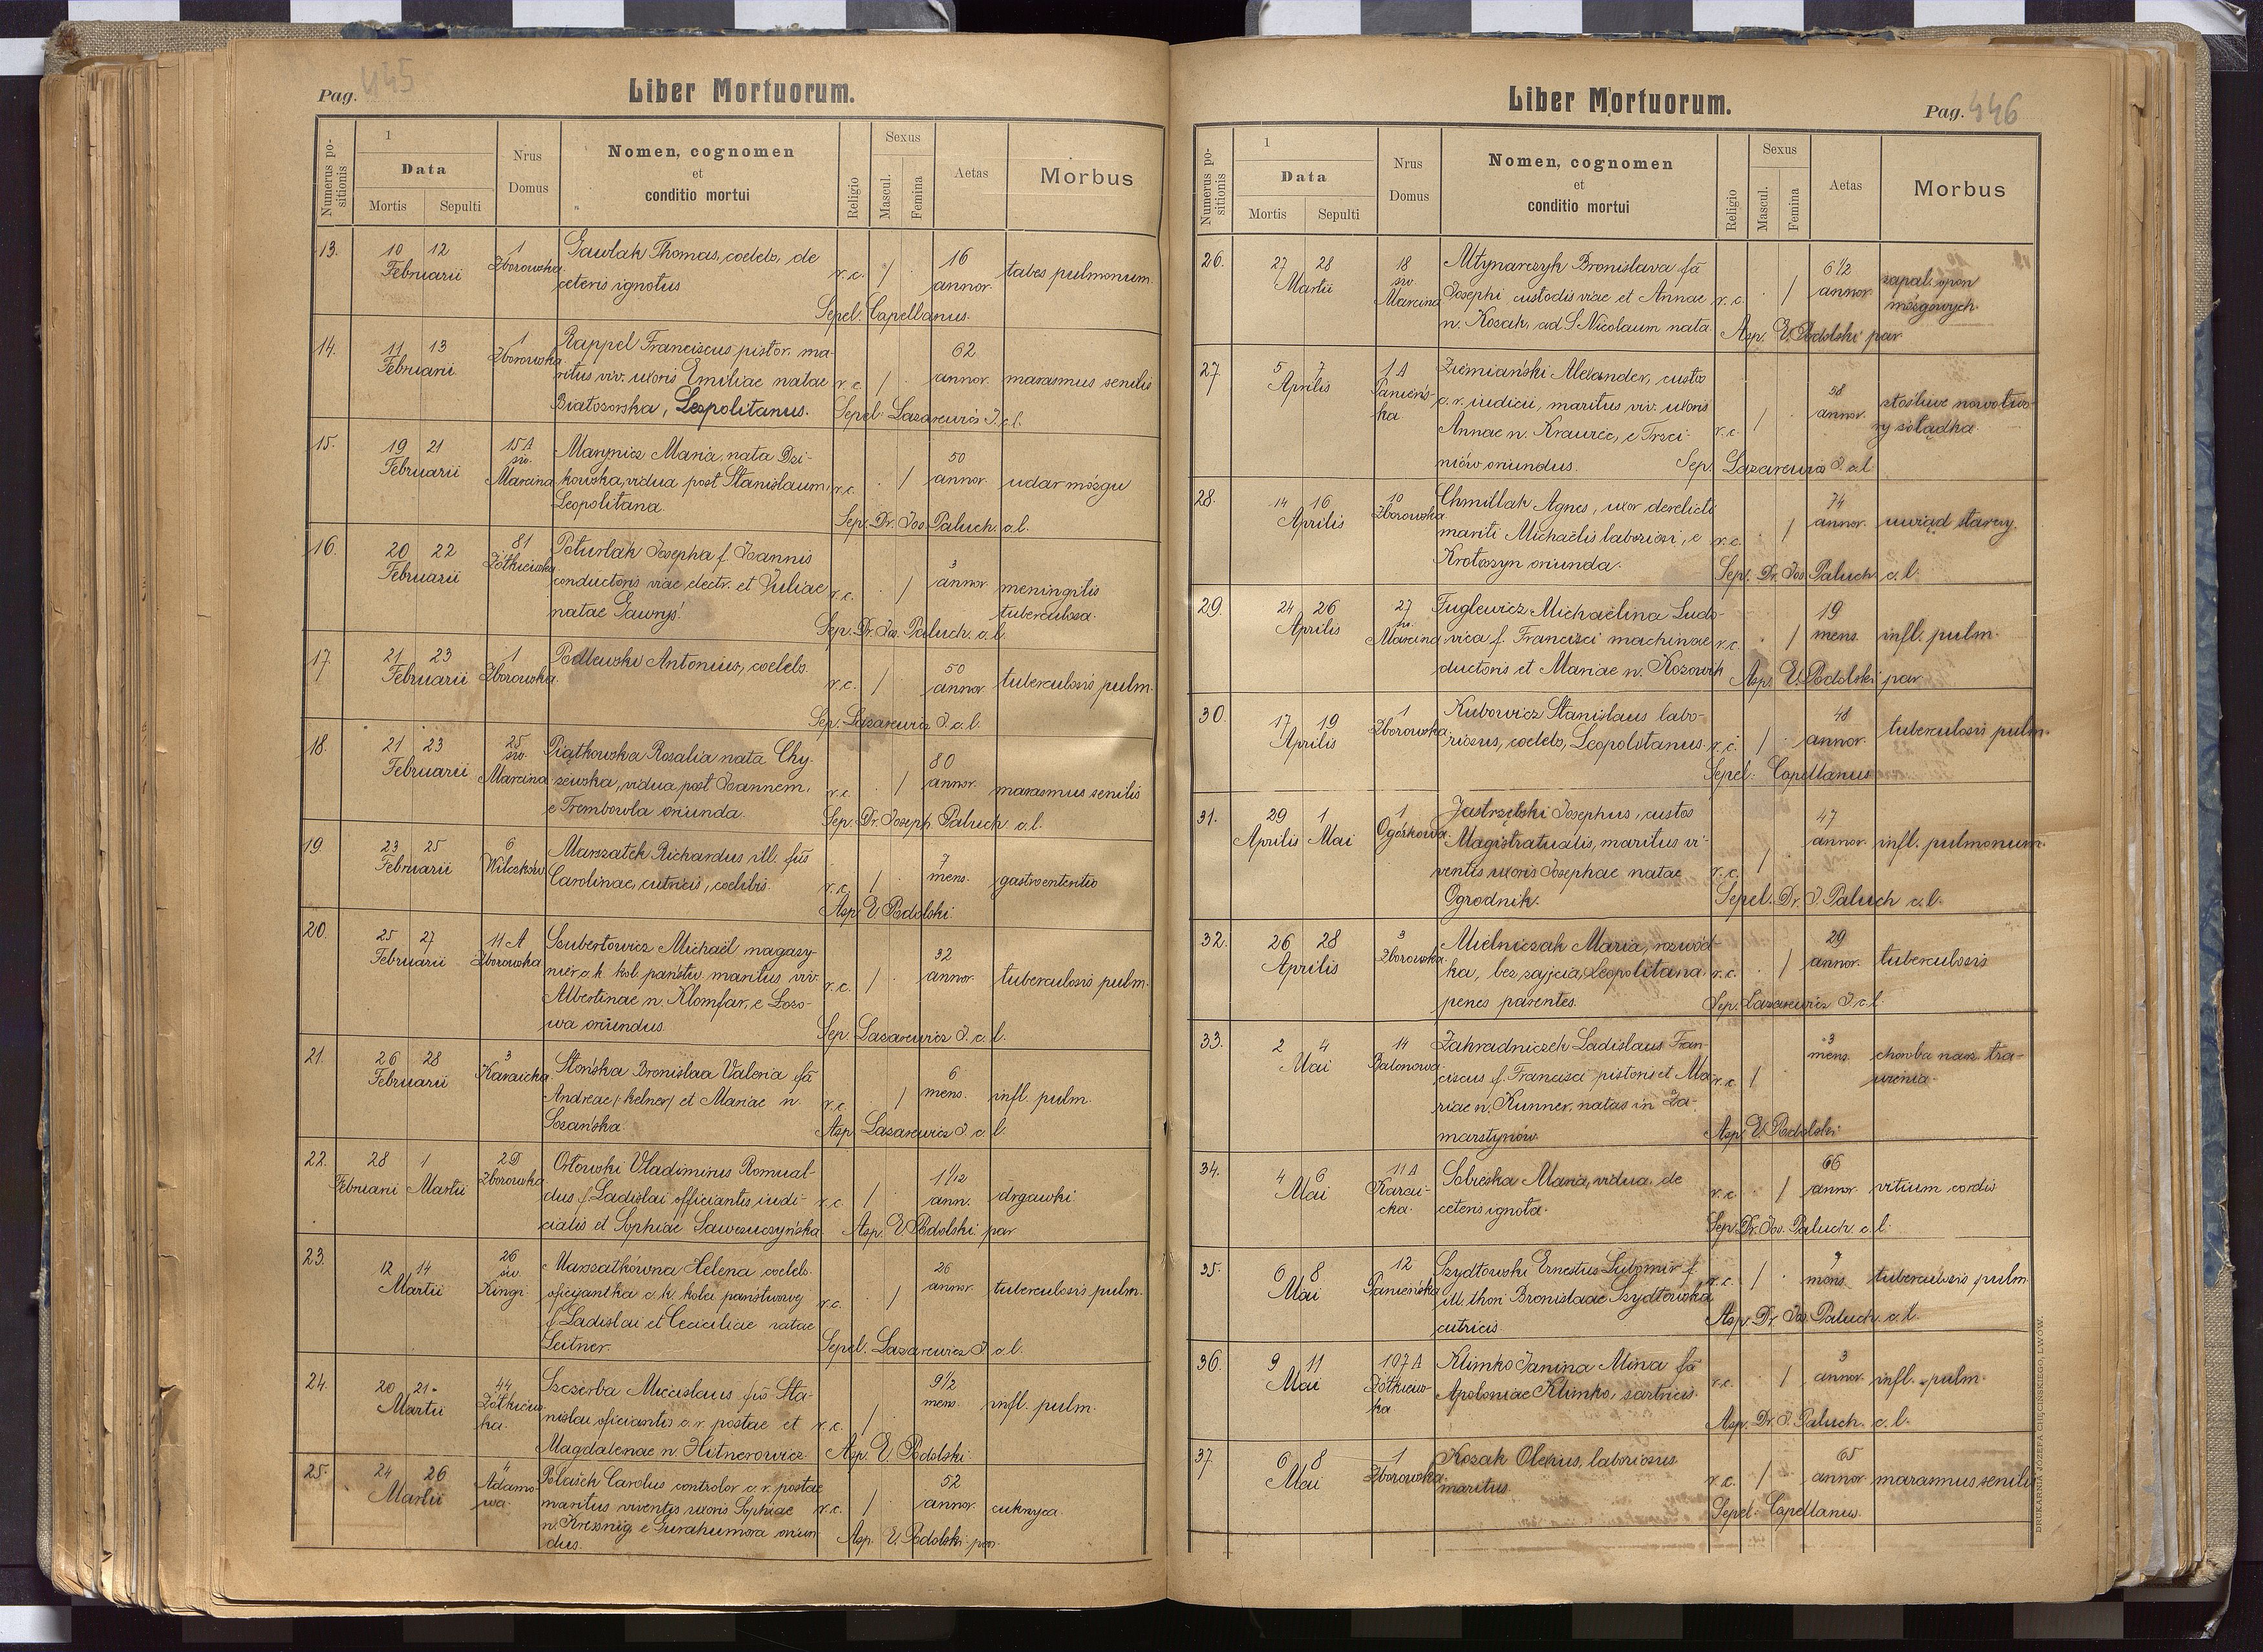 Pag. 445
Liber Mortuorum.
Numerus positionis
1
Data
Mortis
Sepulti
Nrus
Domus
Nomen, cognomen
et
conditio mortui
Religio
Sexus
Mascul.
Femina
Aetas
Morbus
13. 10 12 Februarii 1 Zborowska Gawlak Thomas, coelebs, de
ceteris ignotus r. c. / 16 annor. tabes pulmonum
Sepel. Capellanus.
14. 11 13 Februarii 1 Zborowska Rappel Franciscus pistor. ma-
ritus viv. uxoris Emiliae natae r. c. / 62 annor. marasmus senilis
Białozorska, Leopolitanus. Sepel. Lazarewicz J. c. l.
15. 19 21 Februarii 15 A św. Marcina Marynicz Maria, nata Dzi-
kowska, vidua post Stanislaum, r. c. / 50 annor. udar mózgu
Leopolitana
Sep. Dr. Jos. Paluch. c. l.
16. 20 22 Februarii 81 Żółkiewska Poturlak Josepha f. Joannis
conductoris viae electr. et Juliae r. c. / 3 annor. meningitis
natae Gawryś tuberculosa.
Sep. Dr. Jos. Paluch. c. l.
17. 21 23 Februarii 1 Zborowska Podlewski Antonius, coelebs.
r. c. / 50 annor tuberculosis pulm.
Sep. Lazarewicz J. c. l.
18. 21 23 Februarii 25 św. Marcina Piątkowska Rosalia nata Chy-
żewska, vidua post Joannem, r. c. / 80 annor. marasmus senilis
e Trembowla oriunda.
Sep. Dr. Joseph. Paluch c. l.
19. 23 25 Februarii 6 Wilczków Marszałek Richardus ill. fus
Carolinae, nutricis, coelibis. r. c. / 7 mens. gastroenteritis
Asp. E Podolski.
20. 25 27 Februarii 11 A Zborowska Szubertowicz Michaël magazy-
nier c. k. kol. państw. maritus viv. r. c. / 32 annor. tuberculosis pulm.
Albertinae n. Klomfar, e Łozo-
wa oriundus.
Sep. Lazarewicz J. c. l.
21. 26 28 Februarii 3 Karaicka Słońska Bronislaa Valeria fa
Andreae (kelner) et Mariae n. r. c. / 6 mens. infl. pulm.
Sozańska
Asp. Lazarewicz J. c. l.
22. 28 Februarii 1 Martii 2D Zborowska Orłowski Vladimirus Romual-
dus f. Ladislai officiantis iudi- r. c. / 1 1/12 ann. drgawki
cialis et Sophiae Sawczuczyńska
Asp. E. Podolski. par
23. 12 14 Martii 26 św. Kingi. Marszałkówna Helena coelebs.
oficyantka c. k. kolei państwowej r. c. / 26 annor. tuberculosis pulm.
f. Ladislai et Ceciliae natae
Leitner.
Sepel. Lazarewicz J. c. l.
24. 20 21 Martii 44 Żółkiewska. Szczerba Miecislaus fus Sta-
nislai oficiantis c. r. postae et r. c. / 9 1/2 mens. infl. pulm.
Magdalenae n. Hitnerowicz.
Asp. E. Podolski
25. 24 26 Martii 4 Adamowa. Polašek Carolus controlor c. r. postae
maritus viventis uxoris Sophiae r. c. / 52 annor. cukrzyca
n. Kressnig e Gurahumora oriun
dus.
Asp. E. Podolski. par.
Liber Mortuorum.
Pag. 446
Numerus positionis
1
Data
Mortis
Sepulti
Nrus
Domus
Nomen, cognomen
et
conditio mortui
Religio
Sexus
Mascul.
Femina
Aetas
Morbus
26. 27 28 Martii 18 św. Marcina Młynarczyk Bronislava fa
Josephi custodis viae et Annae r. c. / 6 1/2 annor. zapal. opon
n. Kozak, ad S Nicolaum nata. mózgowych.
Asp. E. Podolski par.
27. 5 7 Aprilis 1 A Panieńska Ziemiański Alexander, custos
c. r. iudicii, maritus viv. uxoris 58 annor. złośliwe nowotwo-
Annae n. Krawiec, e Trzci- r. c. / ry żołądka.
niów oriundus.
Sep. Lazarewicz J. c. l.
28. 14 16 Aprilis 10 Zborowska Chmillak Agnes, uxor derelicti
mariti Michaëlis laboriosi, e r. c. / 74 annor. uwiąd starczy.
Krotoszyn oriunda.
Sepl. Dr. Jos. Paluch c. l.
29. 24 26 Aprilis 27 św. Marcina Fuglewicz Michaëlina Ludo-
vica f. Francisci machinae r. c. / 19 mens. infl. pulm.
ductoris et Mariae n. Kozowik
Asp. E. Podolski par
30. 17 19 Aprilis 1 Zborowska Kubowicz Stanislaus labo-
riosus, coelebs, Leopolitanus. r. c. / 48 annor. tuberculosis pulm.
Sepel: Capellanus
31. 29 Aprilis 1 Mai 1 Ogórkowa Jastrzębski Josephus, custos
Magistratualis, maritus vi- 47 annor. infl. pulmonum.
ventis uxoris Josephae natae r. c. /
Ogrodnik.
Sepel. Dr. J. Paluch c. l.
32. 26 28 Aprilis 3 Zborowska. Mielniczak Maria, rozwód-
ka, bez zajęcia, Leopolitana. r. c. / 29 annor. tuberculosis
penes parentes.
Sep. Lazarewicz J. c. l.
33. 2 4 Mai 14 Balonowa Zahradniczek Ladislaus Fran-
ciscus f. Francisci pistoris et Ma- r. c. / 3 mens. choroba narz. tra-
riae n. Kunner, natus in Za- wienia.
marstynów.
Asp. E. Podolski.
34. 4 6 Mai 11 A Karaicka. Sobieska Maria, vidua, de
ceteris ignota. r. c. / 66 annor. vitium cordis
Sep. Dr. Jos. Paluch. c. l.
35. 6 8 Mai 12 Panieńska Szydłowski Ernestus Lubomir f.
ill. thori Bronislaae Szydłowska r. c. / mens. tuberculosis pulm.
nutricis.
Asp. Dr. Jos. Paluch. c. l.
36. 9 11 Mai 107 A Żółkiewska Klimko Janina Mina fa
Apoloniae Klimko, sartricis. r. c. / 3 annor. infl. pulm.
Asp. Dr. J. Paluch. c. l.
37 6 8 Mai 1 Zborowska. Kozak Olexius, laboriosus.
maritus. r. c. / 65 annor. marasmus senilis
Sepel: Capellanus.
DRUKARNIA JÓZEFA CHĘCIŃSKIEGO, LWÓW.